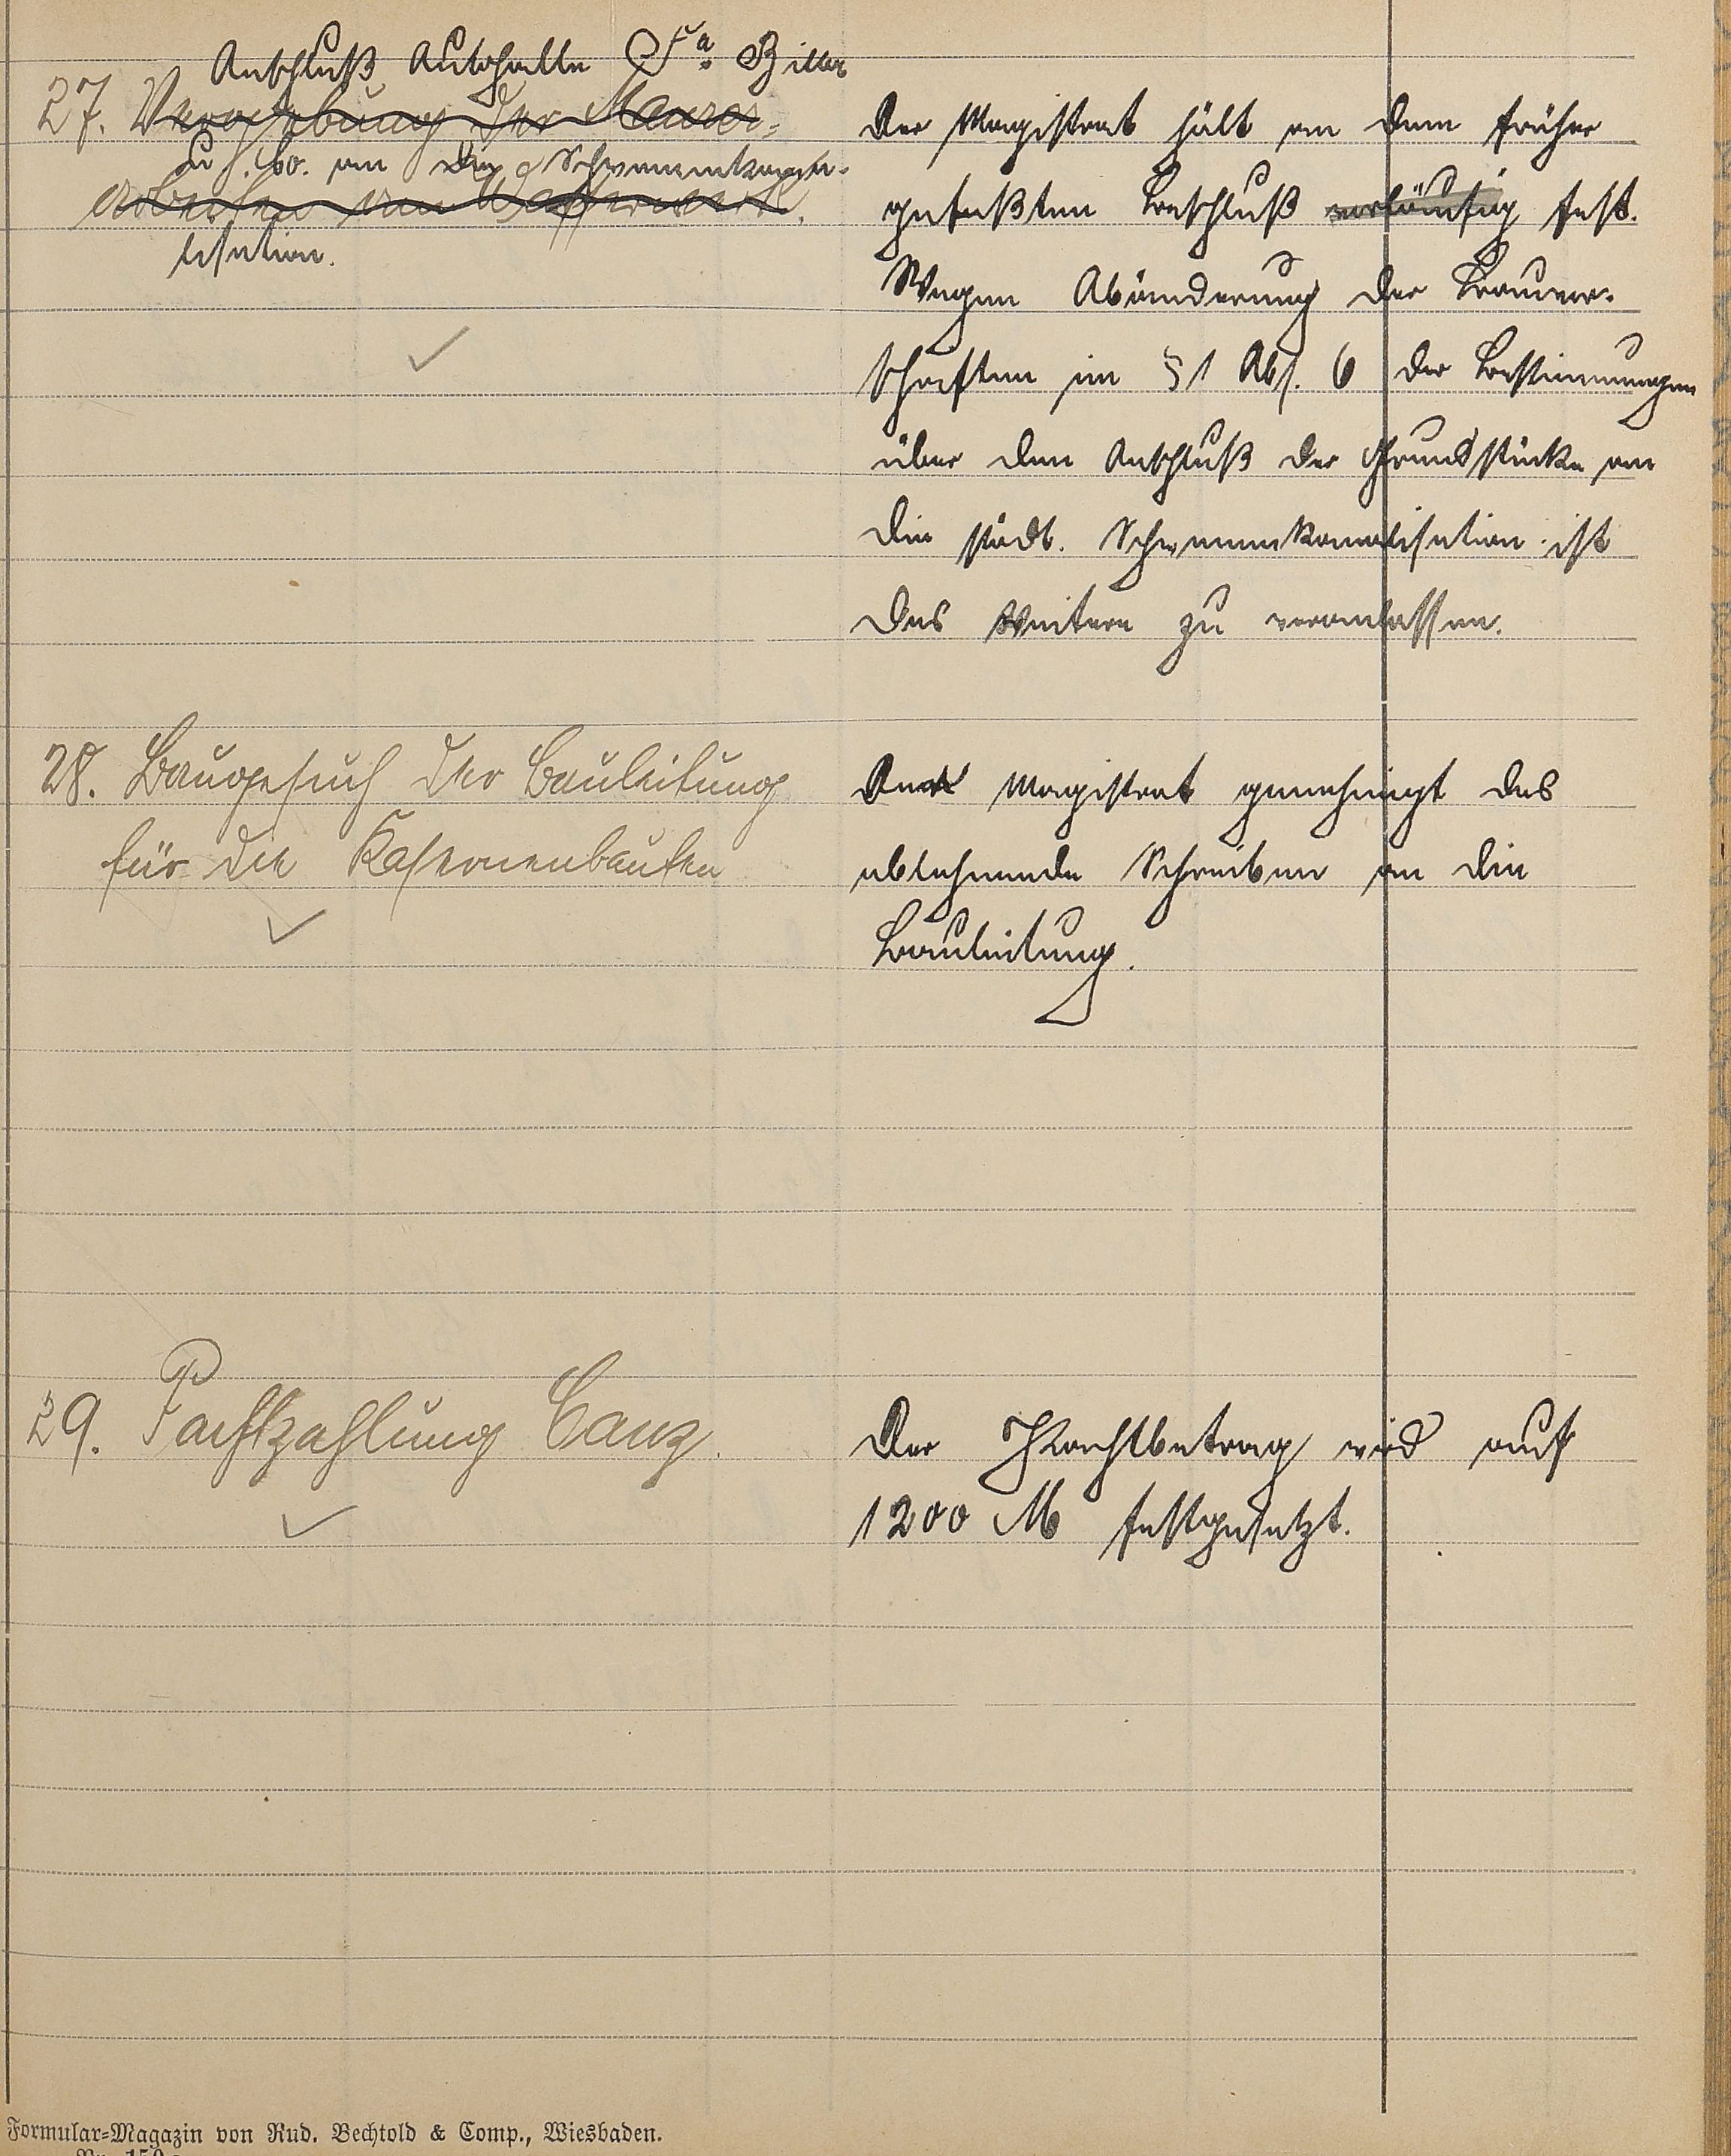 Anschluß Autohalle Fa. Biller
27. Vergebung der Maurer-
u. s. Co. an die Schwemmkana-
arbeiten am Wasserwerk.
lisation.
Der Magistrat hält an dem früher
gefaßten Beschluß vorläufig fest.
Wegen Abänderung der Bauvor-
schriften im § 1 Abs. 6 der Bestimmungen
über den Anschluß der Grundstücke an
die städt. Schwemmkanalisation ist
das Weitere zu veranlassen.
28. Baugesuch der Bauleitung
für die Kasernenbauten
Der Magistrat genehmigt das
ablehnende Schreiben an die
Bauleitung.
29. Pachtzahlung Canz.
Der Pachtbetrag wird auf
1200 M festgesetzt.
Formular-Magazin von Rud. Bechtold & Comp., Wiesbaden.